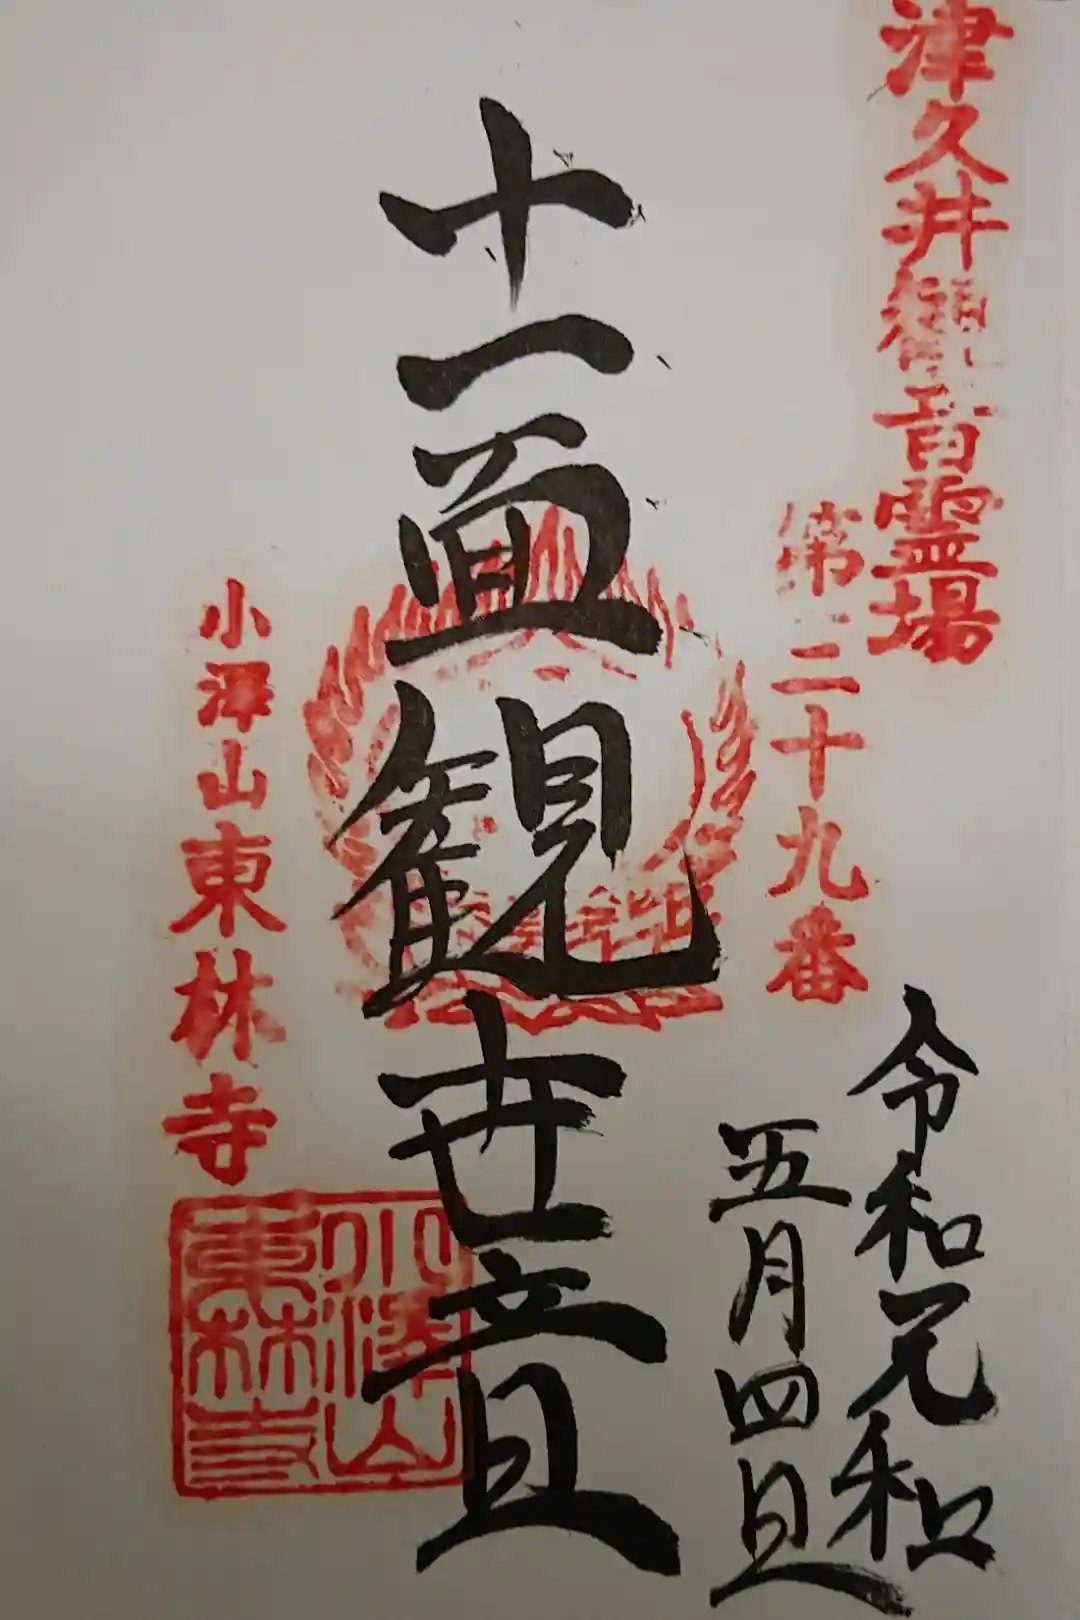 津久井観音霊場
第二十九番
令和元和
五月四日
十一面観世音
小澤山東林寺
小澤山
東林寺